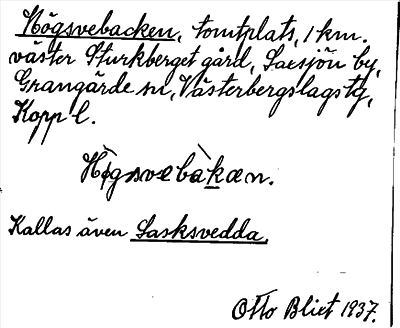 Högsvebacken, tomtplats, 1 km.
väster Sturkberget gård, Saesjön by,
Grangärde sn, Västerbergslags tg,
Kopp l.
Hǫ̀gsvebàkæn.
Kallas även Sasksvedda.
Otto Blixt 1937.